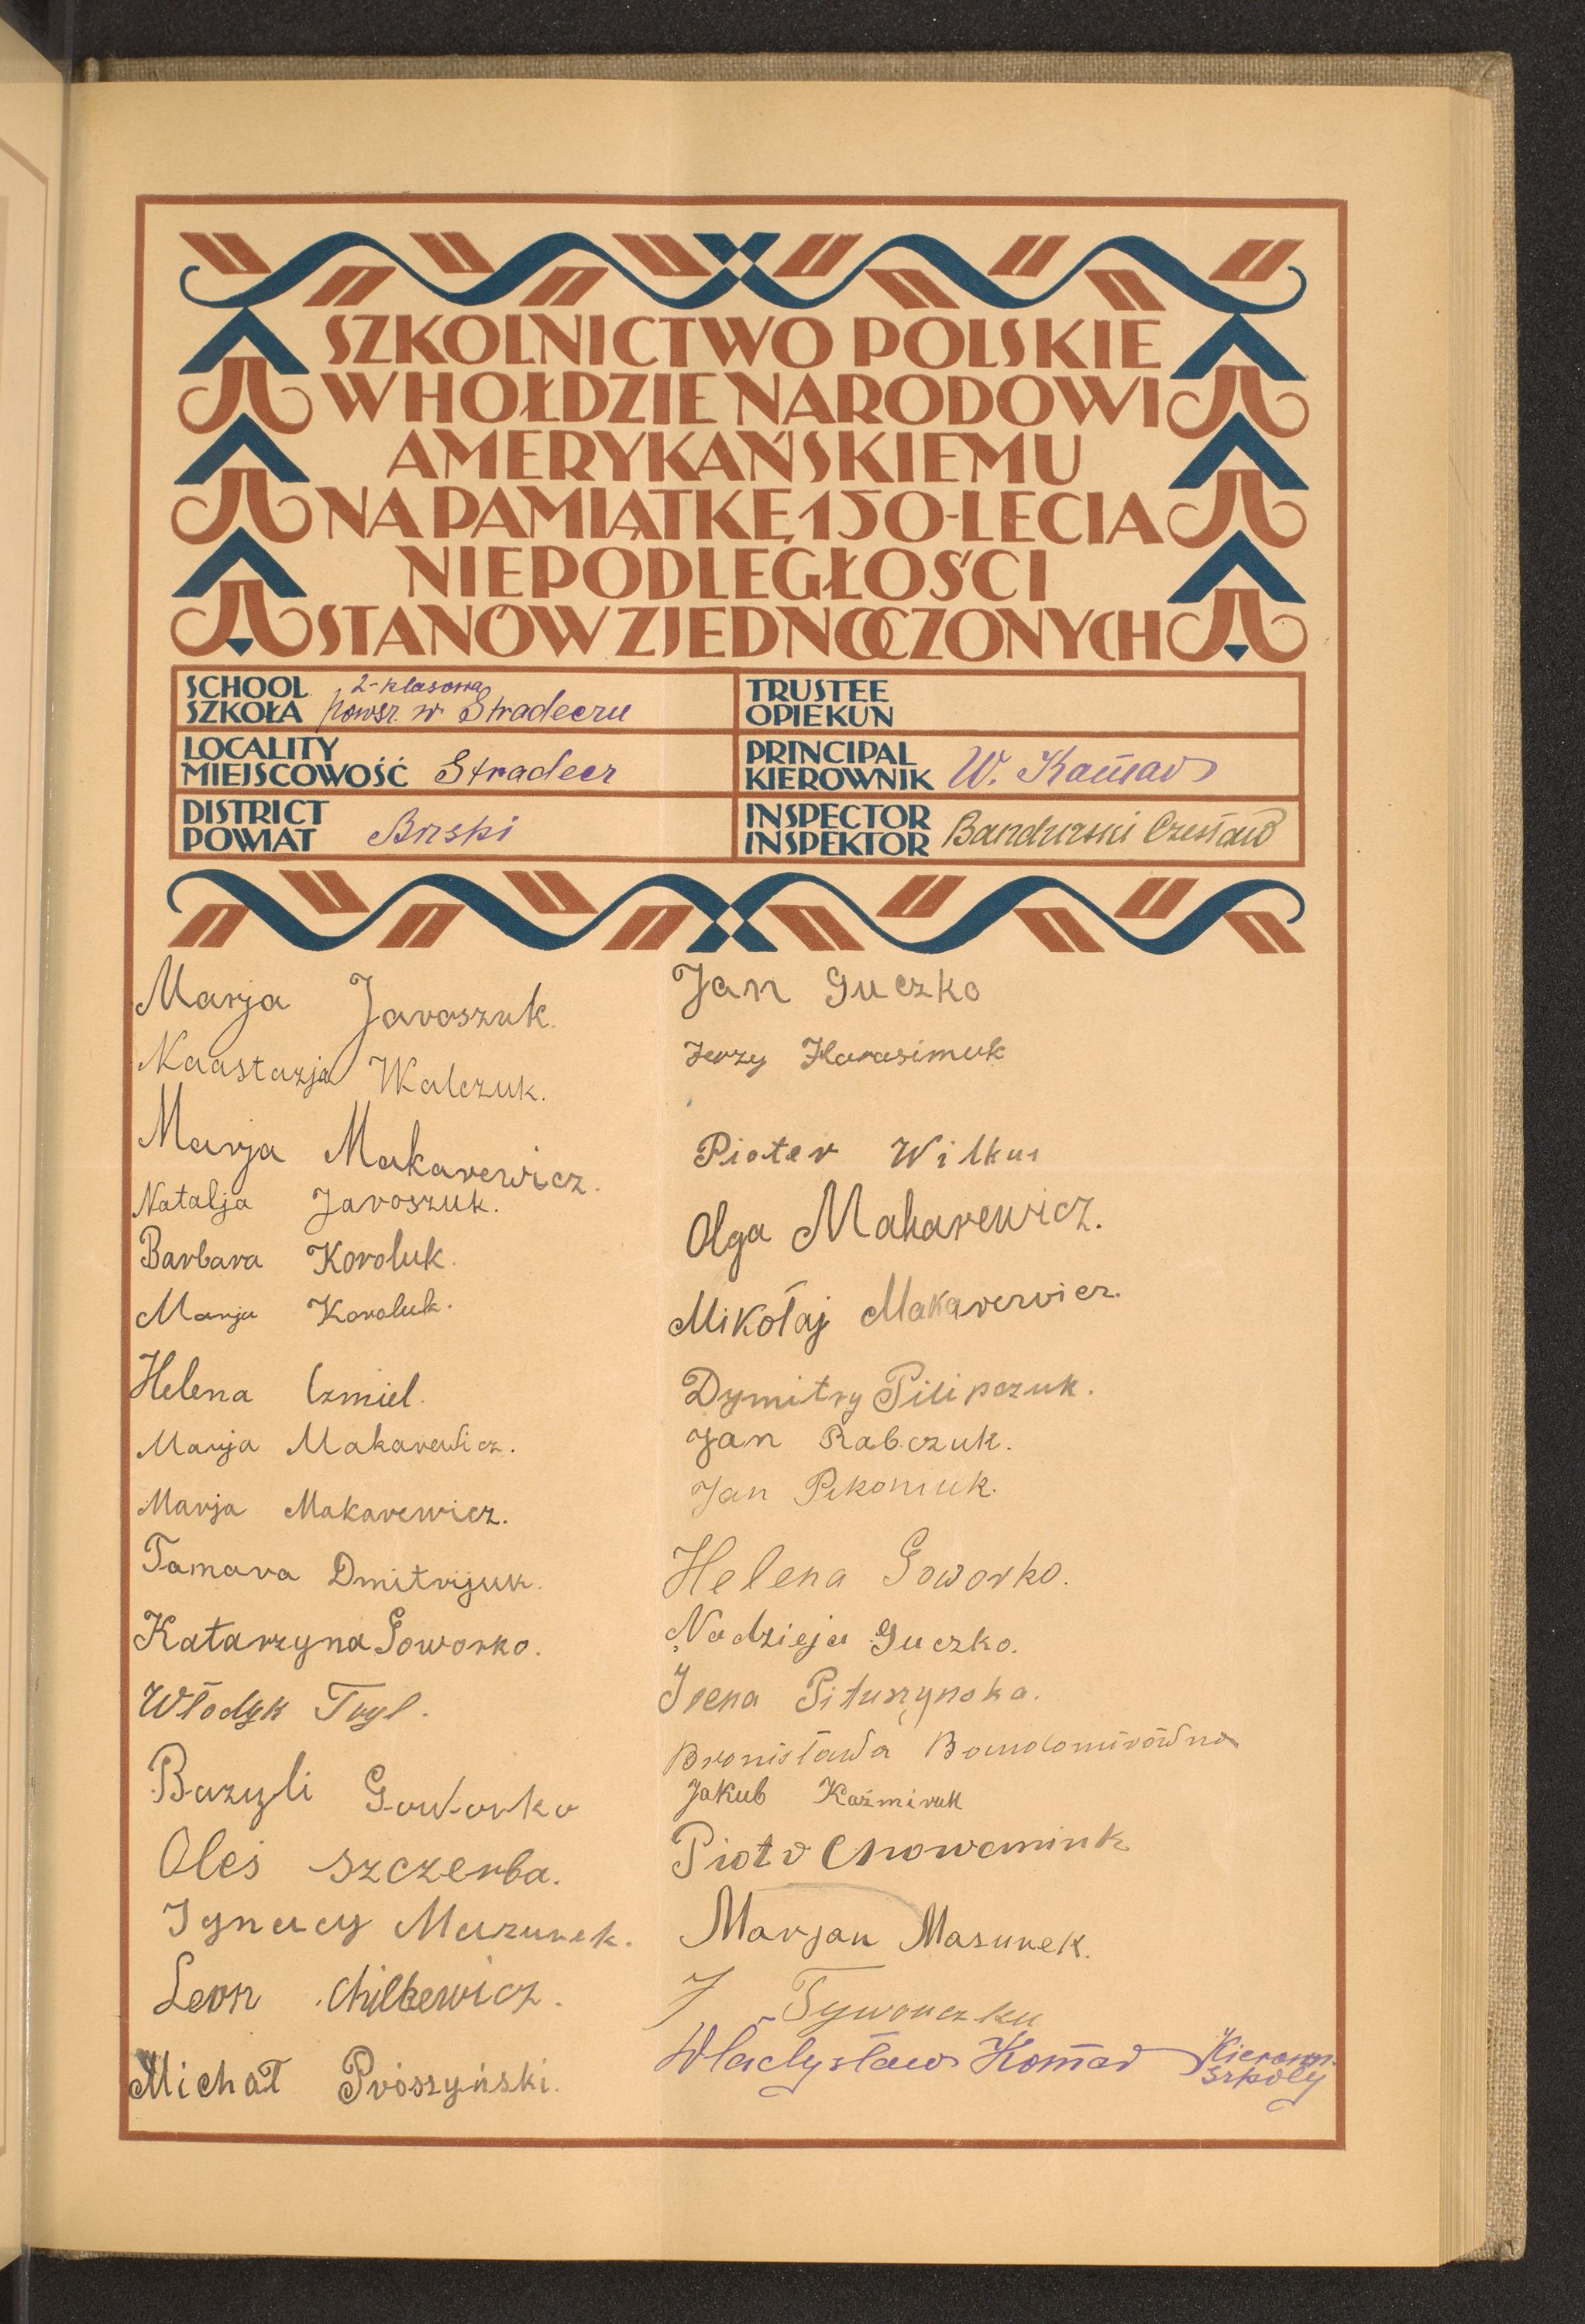 SZKOLNICTWO POLSKIE
W HOŁDZIE NARODOWI
AMERYKAŃSKIEMU
NA PAMIĄTKĘ 150-LECIA
NIEPODLEGŁOŚCI
STANÓW ZJEDNOCZONYCH
SCHOOL
SZKOŁA
2-klasowa
powsz. w Stradeczu
TRUSTEE
OPIEKUN
LOCALITY
MIEJSCOWOŚĆ Stradecz
PRINCIPAL
KIEROWNIK W. Komar
DISTRICT
POWIAT Brski
INSPECTOR
INSPEKTOR Bandurski Czesław
Marja Jaroszuk.
Naastazja Walczuk.
Marja Makarewicz.
Natalja Jaroszuk.
Barbara Koroluk.
Marja Koroluk.
Helena Czmiel.
Marja Makarewicz.
Marja Makarewicz.
Tamara Dmitrijuk.
Katarzyna Goworko.
Włodyk Tryl.
Bazyli Goworko
Oleś Szczerba.
Ignacy Mazurek.
Leon Chilkewicz.
Michał Prószyński.
Jan Guczko
Jerzy Harasimuk
Pioter Wilkus
Olga Makarewicz.
Mikołaj Makarewicz.
Dymitry Pilipczuk.
Jan Rabczuk.
Jan
Helena Goworko.
Nadzieja Guczko.
Irena Pituszynska.
Bronisława
Jakub Kaźmiruk
Piotr
Marjan Masurek.
Władysław Komar Kierown.
szkoły